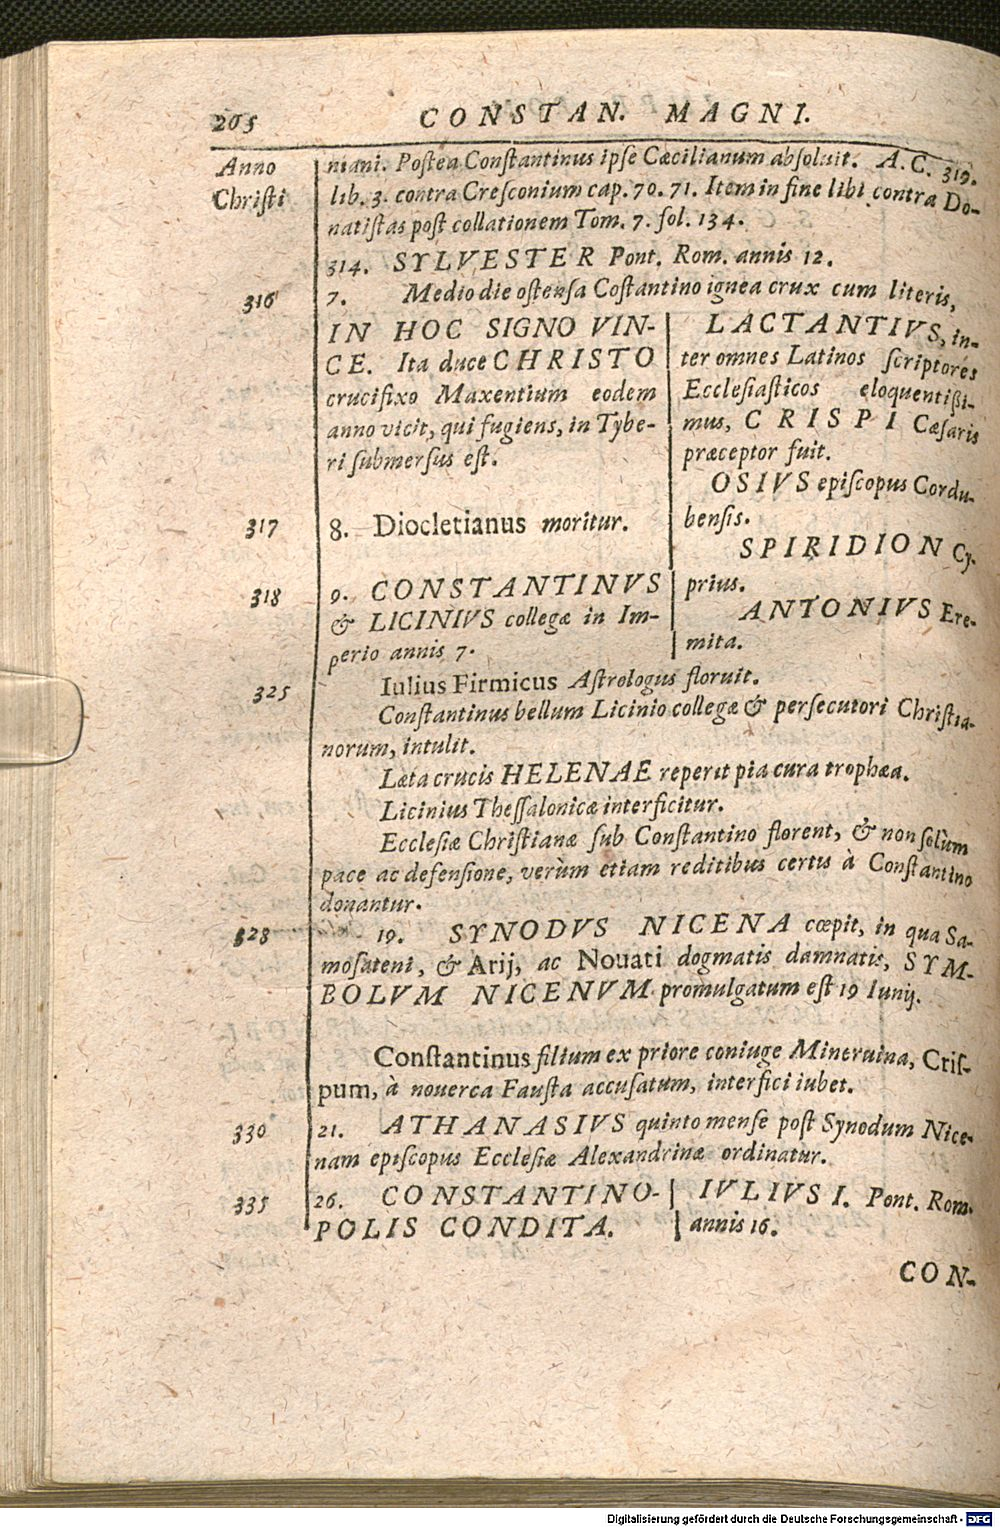 205 CONSTAN. MAGNI.
Anno Christi
niani. Postea Constantinus ipse Cæcilianum absoluit. A. C. 319.
lib. 3. contra Cresconium cap. 70. 71. Item in fine libi contra Do-
natistas post collationem Tom. 7. fol. 134.
314. SYLVESTER Pont. Rom. annis 12.
316 7. Medio die ostensa Costantino ignea crux cum literis,
IN HOC SIGNO VIN-
CE. Ita duce CHRISTO
crucifixo Maxentium eodem
anno vicit, qui fugiens, in Tybe-
ri submersus est.
317 8. Diocletianus moritur.
318 9. CONSTANTINVS
& LICINIVS collegæ in Im-
perio annis 7.
LACTANTIVS, in-
ter omnes Latinos scriptores
Ecclesiasticos eloquentißi-
mus, CRISPI Cæsaris
præceptor fuit.
OSIVS episcopus Cordu-
bensis.
SPIRIDION Cy-
prius.
ANTONIVS Ere-
mita.
325 Iulius Firmicus Astrologus floruit.
Constantinus bellum Licinio collegæ & persecutori Christia-
norum, intulit.
Læta crucis HELENAE reperit pia cura trophæa.
Licinius Thessalonicæ interficitur.
Ecclesiæ Christianæ sub Constantino florent, & non solùm
pace ac defensione, verùm etiam reditibus certis à Constantino
donantur.
328 19. SYNODVS NICENA cœpit, in qua Sa-
mosateni, & Arij, ac Nouati dogmatis damnatis, SYM-
BOLVM NICENVM promulgatum est 19 Iunij.
Constantinus filium ex priore coniuge Mineruina, Cris-
pum, à nouerca Fausta accusatum, interfici iubet.
330 21. ATHANASIVS quinto mense post Synodum Nice-
nam episcopus Ecclesiæ Alexandrinæ ordinatur.
335 26. CONSTANTINO-
POLIS CONDITA.
IVLIVS I. Pont. Rom.
annis 16.
CON-
Digitalisierung gefördert durch die Deutsche Forschungsgemeinschaft - DFG